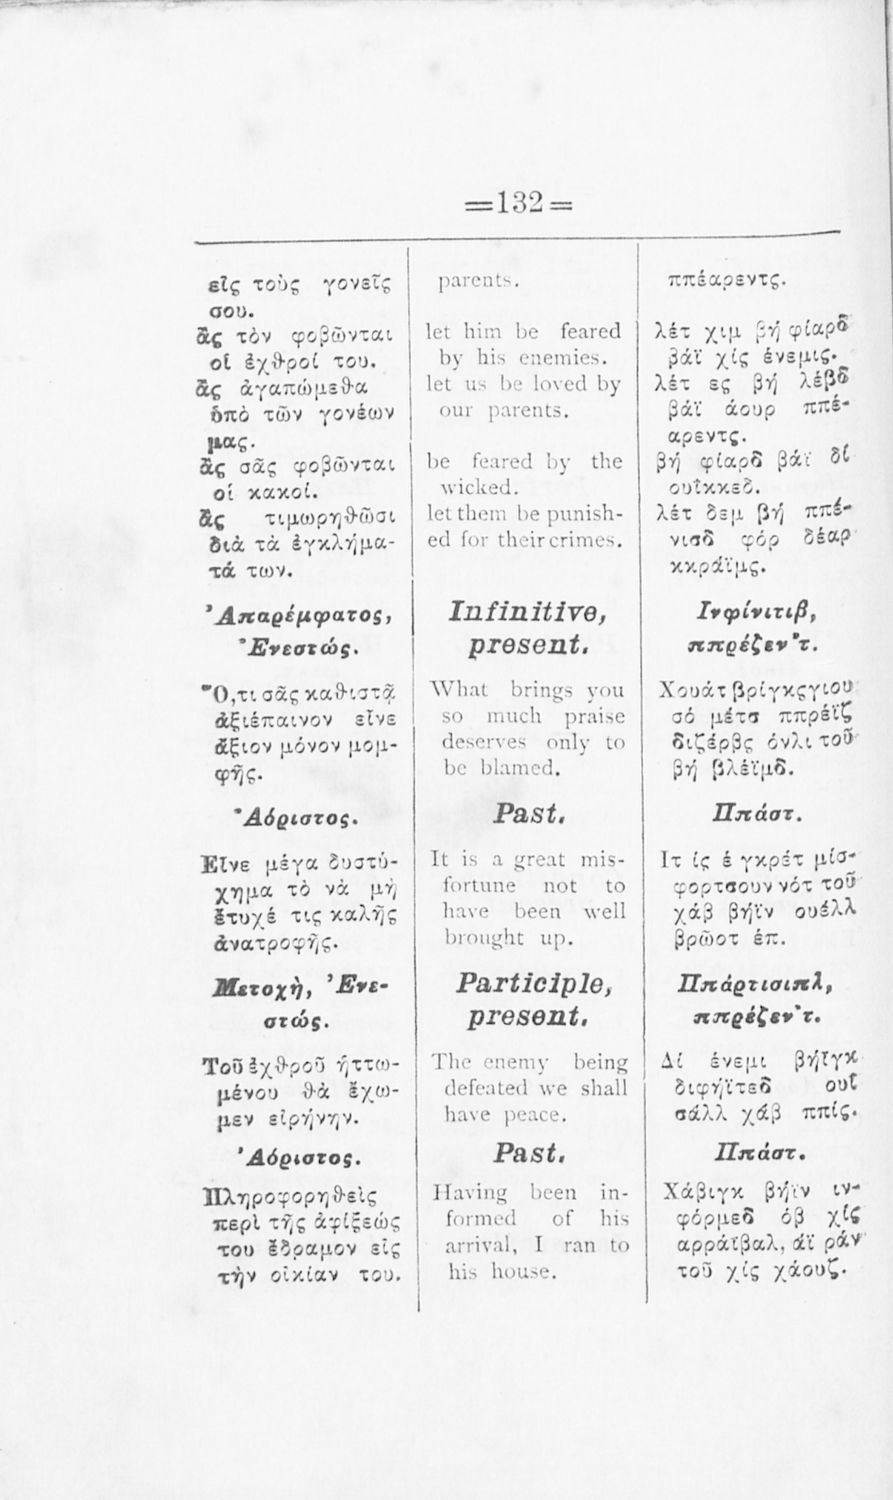 =132=
εἰς τοὺς γονεῖς
σου.
ἂς τὸν φοβῶνται
οἱ ἐχθροί του.
ἂς ἀγαπώμεθα
ὑπὸ τῶν γονέων
μας.
ἂς σᾶς φοβῶνται
οἱ κακοί.
ἂς τιμωρηθῶσι
διὰ τὰ ἐγκλήμα-
τά των.
Ἀπαρέμφατος,
Ἐνεστώς.
Ὅ,τι σᾶς καθιστᾷ
ἀξιέπαινον εἶνε
ἄξιον μόνον μομ-
φῆς.
Ἀόριστος.
Εἶνε μέγα δυστύ-
χημα τὸ νὰ μὴ
ἔτυχέ τις καλῆς
ἀνατροφῆς.
Μετοχὴ, Ἐνε-
στώς.
Τοῦ ἐχθροῦ ἡττω-
μένου θὰ ἔχω-
μεν εἰρήνην.
Ἀόριστος.
Πληροφορηθεὶς
περὶ τῆς ἀφίξεώς
του ἔδραμον εἰς
τὴν οἰκίαν του.
parents.
let him be feared
by his enemies.
let us be loved by
our parents.
be feared by the
wicked.
let them be punish-
ed for their crimes.
Infinitive,
present.
What brings you
so much praise
deserves only to
be blamed.
Past.
It is a great mis-
fortune not to
have been well
brought up.
Participle,
present.
The enemy being
defeated we shall
have peace.
Past.
Having been in-
formed of his
arrival, I ran to
his house.
ππέαρεντς.
λέτ χιμ βή φίαρδ
βάϊ χίς ένεμις.
λέτ ες βή λέβδ
βάϊ άουρ ππέ-
αρεντς.
βή φίαρδ βάϊ δί
ουΐκκεδ.
λέτ δεμ βή ππέ-
νισδ φόρ δέαρ
κκράϊμς.
Ινφίνιτιβ,
ππρέζεν'τ.
Χουάτ βρίγκςγιου
σό μέτσ ππρέϊζ
διζέρβς όνλι τοῦ
βή βλέϊμδ.
Ππάστ.
Ιτ ίς έ γκρέτ μίσ-
φορτσουν νότ τοῦ
χάβ βήϊν ουέλλ
βρῶοτ έπ.
Ππάρτισιπλ,
ππρέζεν'τ.
Δί ένεμι βήϊγκ
διφήϊτεδ ουΐ
σάλλ χάβ ππίς.
Ππάστ.
Χάβιγκ βήϊν ιν-
φόρμεδ όβ χίς
αρράϊβαλ, άϊ ράν
τοῦ χίς χάουζ.